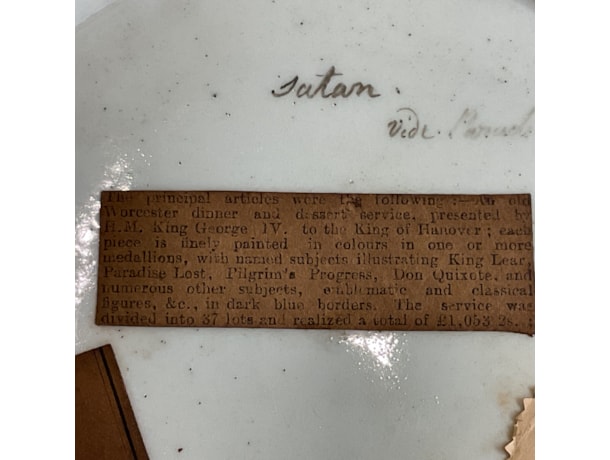 Satan.
Vide.
The principal articles were the following:—An old
Worcester dinner and dessert service, presented by
H.M. King George IV. to the King of Hanover; each
piece is finely painted in colours in one or more
medallions, with named subjects illustrating King Lear,
Paradise Lost, Pilgrim's Progress, Don Quixote, and
numerous other subjects, emblematic and classical
figures, &c., in dark blue borders. The service was
divided into 37 lots and realized a total of £1,053 2s.